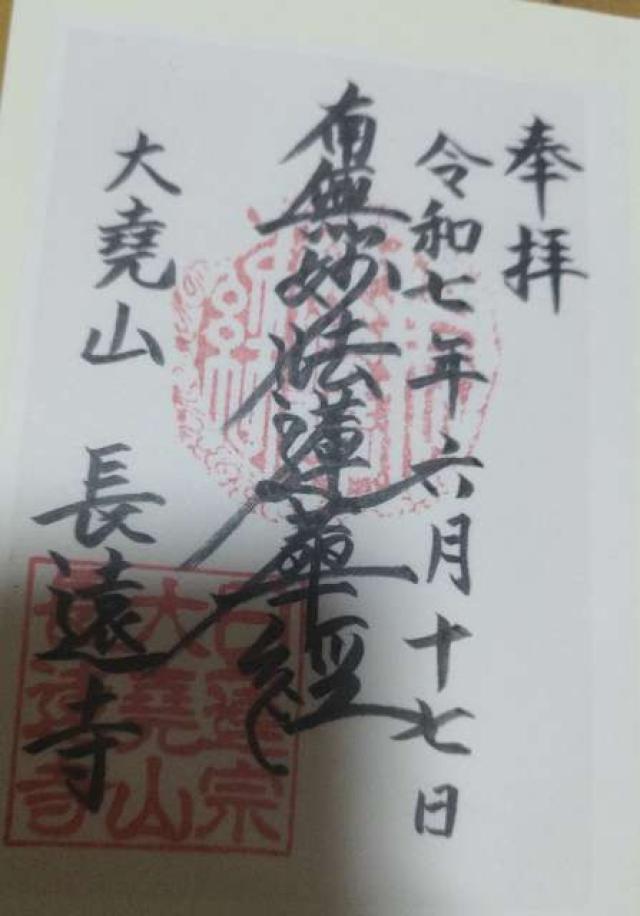 奉拝
令和七年六月十七日
南無妙法蓮華経
大堯山 長遠寺
日蓮宗
大堯山
長遠寺